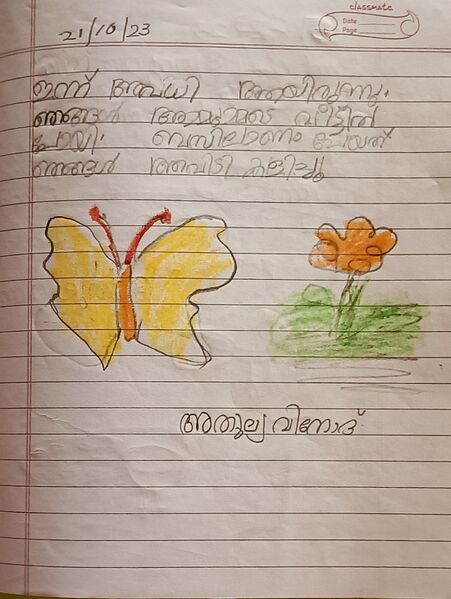 classmate
Date
Page
21/10/23
ഇന്ന് അവധി ആയിരുന്നു.
ഞങ്ങൾ അമ്മുമ്മയുടെ വീട്ടിൽ
പോയി. ബസിലാണ് പോയത്
ഞങ്ങൾ അവിടെ കളിച്ചു
അതുല്യ വിനോദ്